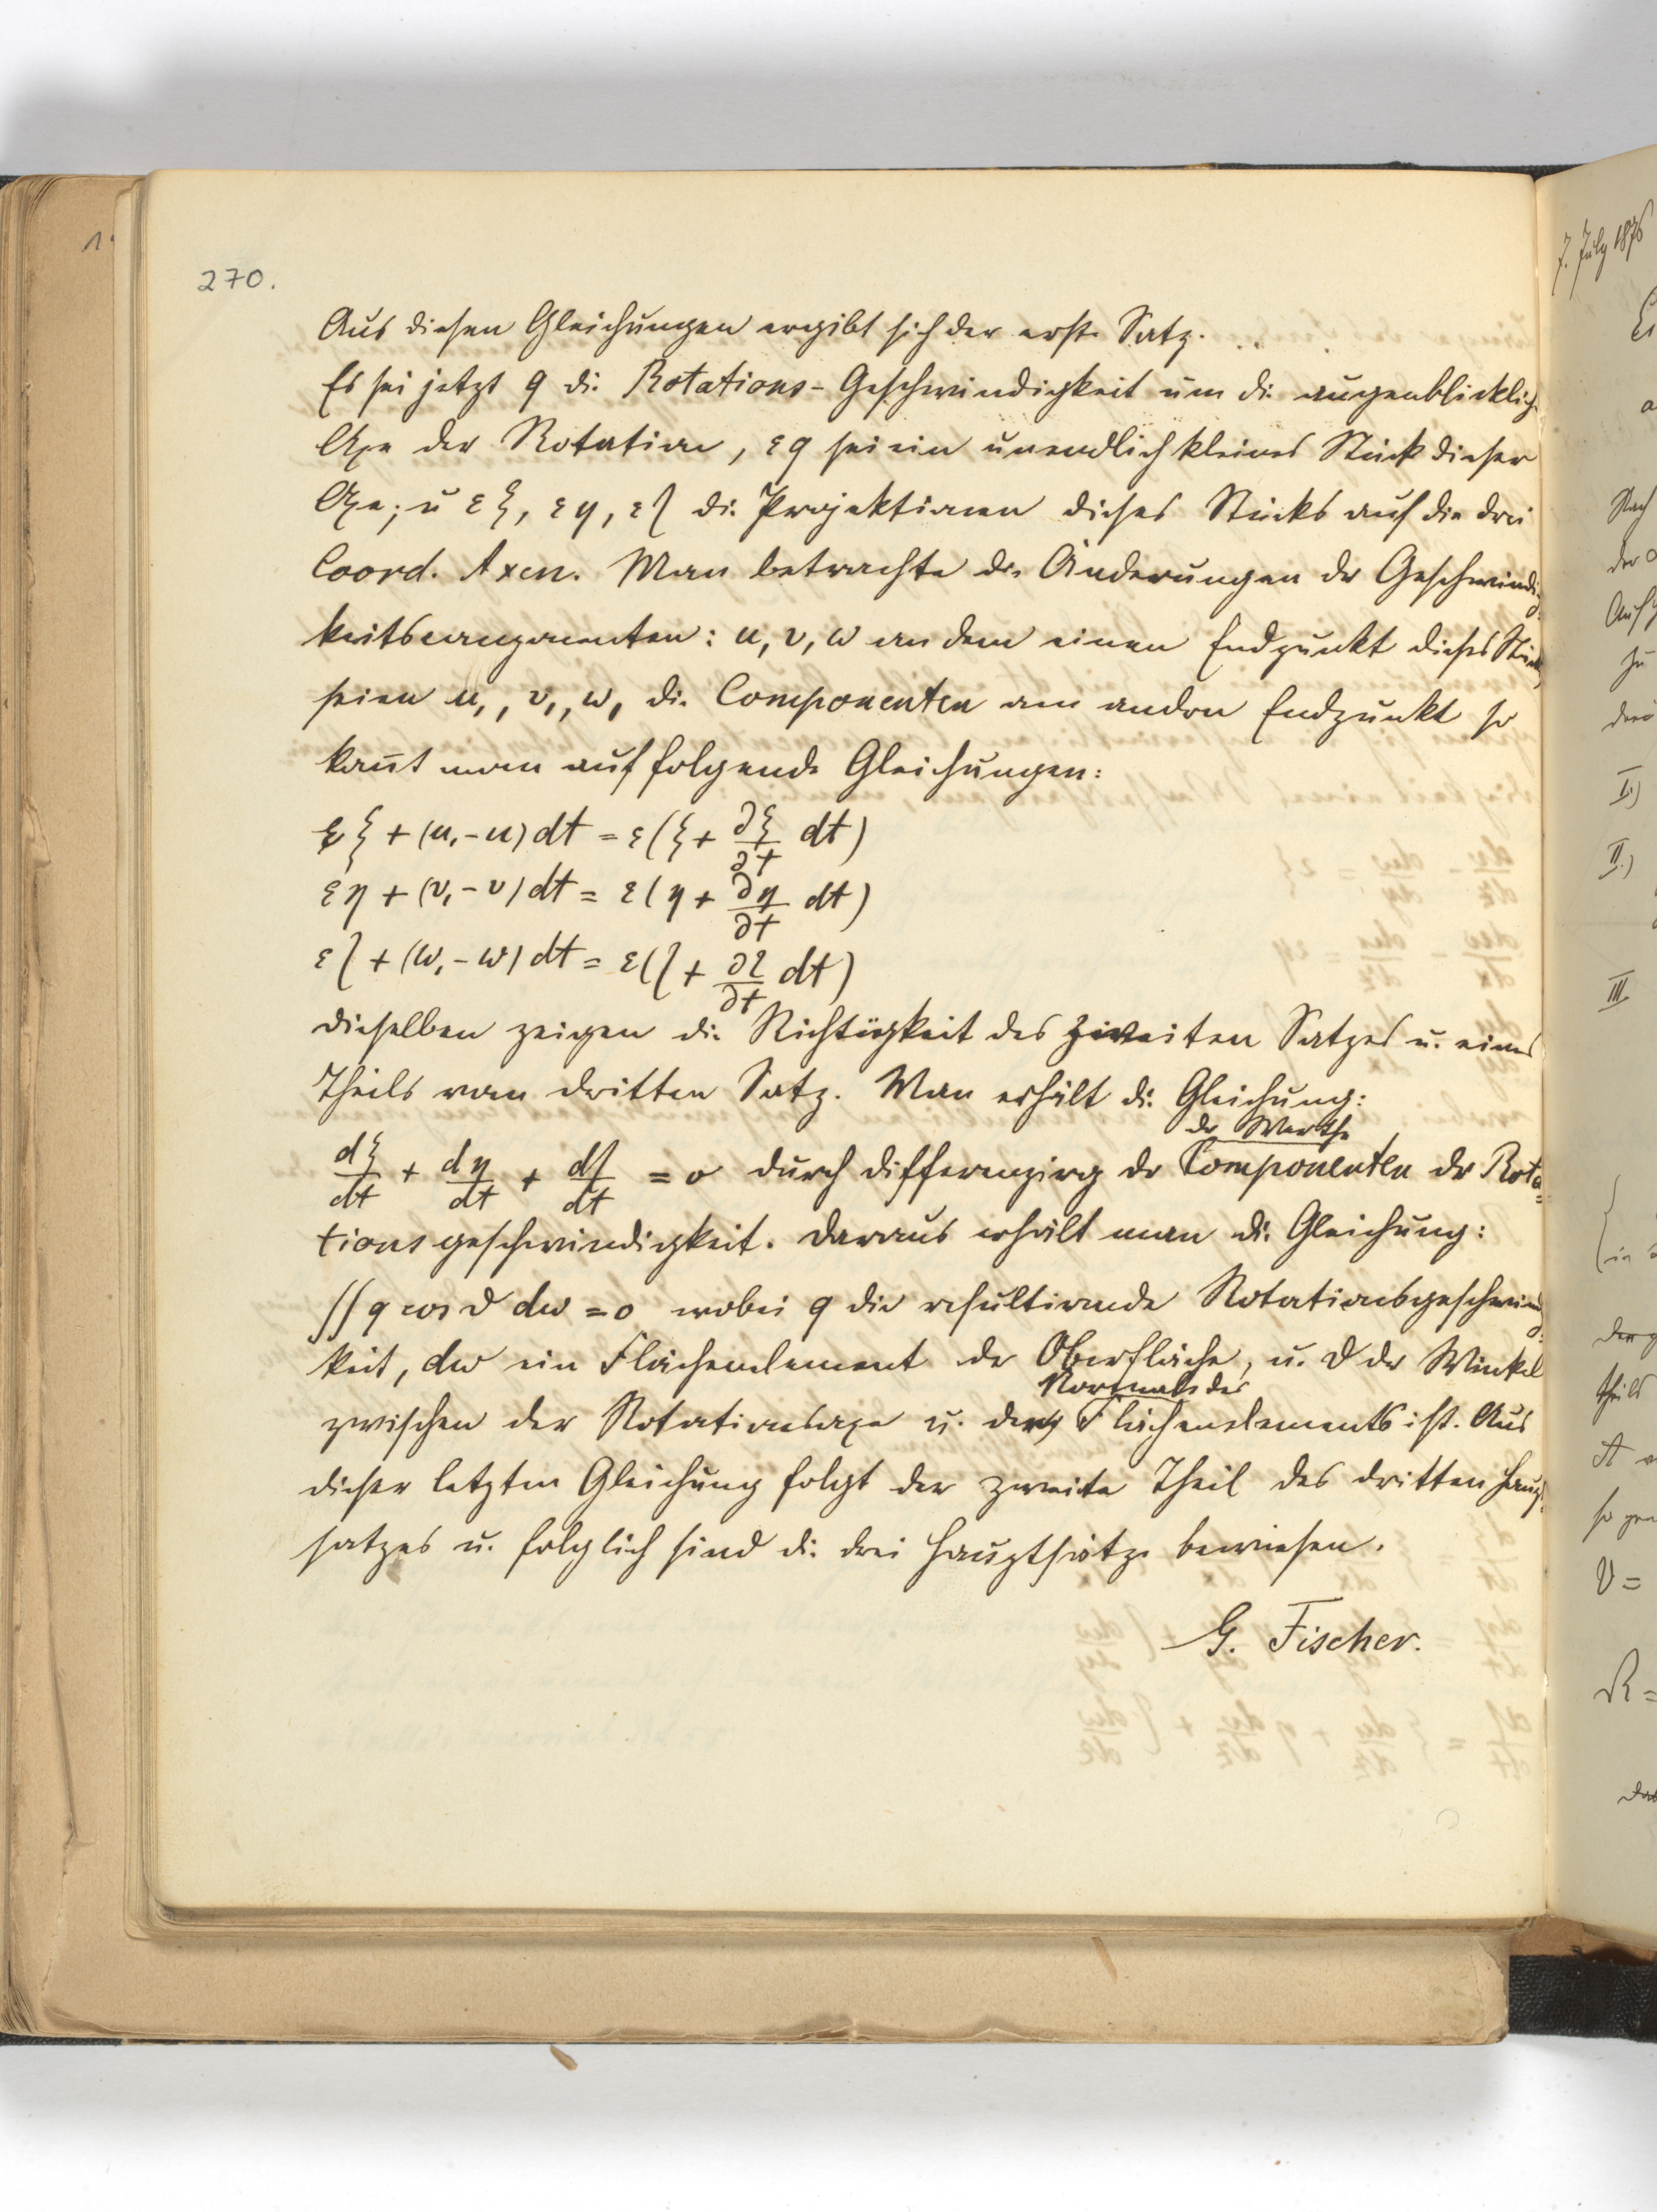 270.
Aus diesen Gleichungen ergibt sich der erste Satz.
Es sei jetzt q die Rotations-Geschwindigkeit um die augenblickliche
Axe der Rotation, εq sei ein unendlich kleines Stück dieser
Axe; u εξ, εη, εζ die Projektionen dieses Stücks auf die drei
Coord. Axen. Man betrachte die Änderungen der Geschwindig-
keitscomponenten: u, v, w an dem einen Endpunkt dieses Stücks,
seien u₁, v₁, w₁ die Componenten am andern Endpunkt so
kommt man auf folgende Gleichungen:
εξ + (u₁-u) dt = ε(ξ + ∂ξ/∂t dt)
εη + (v₁-v) dt = ε(η + ∂η/∂t dt)
εζ + (w₁-w) dt = ε(ζ + ∂ζ/∂t dt)
dieselben zeigen die Richtigkeit des zweiten Satzes u. eines
Theils vom dritten Satz. Man erhält die Gleichung:
der Werthe
dξ/dt + dη/dt + dζ/dt = 0 durch differenzirg der Componenten der Rota-
tionsgeschwindigkeit. Daraus erhält man die Gleichung:
∫∫ q cos ϑ dω = 0 wobei q die resultirende Rotationsgeschwindig-
keit, dω ein Flächenelement der Oberfläche, u. ϑ der Winkel
Normale des
zwischen der Rotationsaxe u. der Flächenelements ist. Aus
dieser letzten Gleichung folgt der zweite Theil des dritten Haupt-
satzes u. folglich sind die drei Hauptsätze bewiesen.
G. Fischer.
7. July 1876
Nach
der
Auf
zu
drei
I.)
II.)
III
(in
theils
A
V =
R =